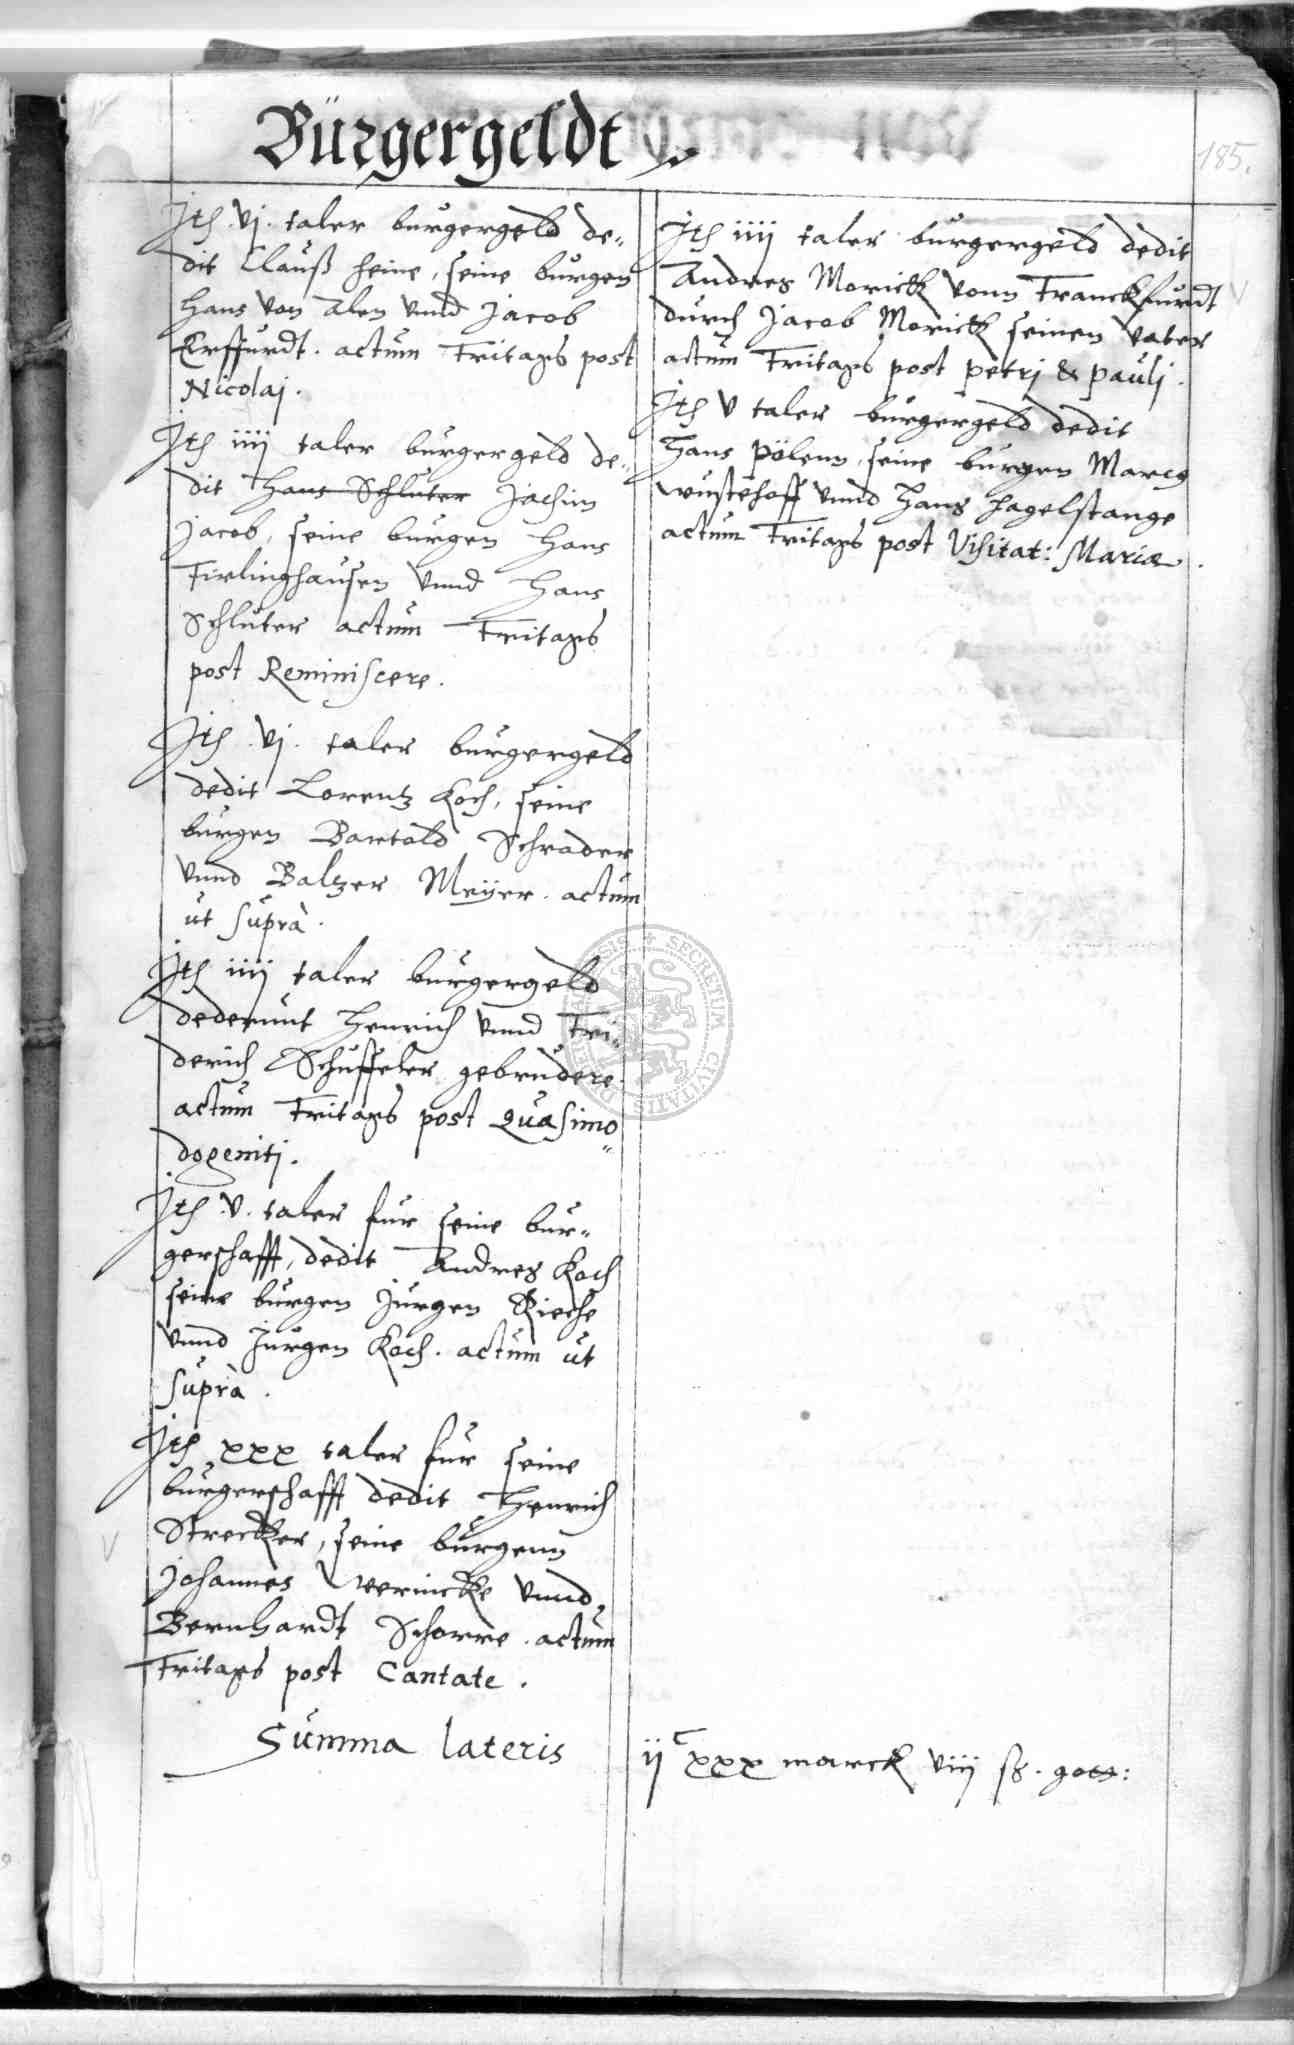 Bürgergeldt
185.
Jtē .vj. taler burgergeld de„
dit Clauß Heine, seine burgen
Hans von Alen vnnd Jacob
Erffurdt. actum Fritags post
Nicolaj.
Jtē iiij taler burgergeld de„
dit Hans Schluter Jachim
Jacob, seine burgen Hans
Firlinghausen vnnd Hans
Schluter actum Fritags
post Reminiscere.
Jtē .vj. taler burgergeld
dedit Lorentz Koch, seine
burgen Bartold Schrader
vnnd Baltzer Meijer. actum
ut suprà.
Jtē iiij taler burgergeld
dederunt Henrich vnnd Fri„
derich Schuffeler gebrudere
actum Fritags post Quasimo„
dogenitj.
Jtē .v. taler fur seine bur„
gerschafft, dedit Andres Koch
seine burgen Jurgen Rieche
vnnd Jurgen Koch. actum ut
suprà.
Jtē xxx taler fur seine
burgerschafft dedit Henrich
Strecker, seine burgenn
Johannes Werincke vnnd
Bernhardt Schorre. actum
Fritags post Cantate.
Jtē iiij taler burgergeld dedit
Andres Morick vonn Franckfurdt
durch Jacob Morick seinen vater
actum Fritags post petrj & paulj.
Jtē v taler burgergeld dedit
Hans Pölenn, seine burgen Marcꝯ
Wustehoff vnnd Hans Hagelstange
actum Fritags post Visitat: Mariæ.
Summa lateris ijᶜ xxx marck viij ß. gott:
SECRETUM CIVITATIS